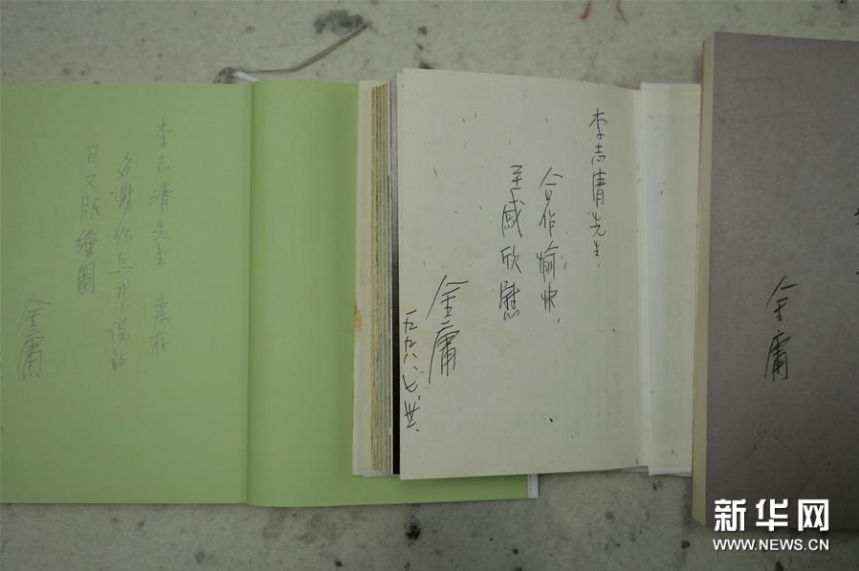 李志清先生 惠存
多謝你為
日文版繪圖
金庸
李志清先生，
合作愉快，
至感欣慰
金庸
一九九八、七、
金庸
新华网
WWW.NEWS.CN